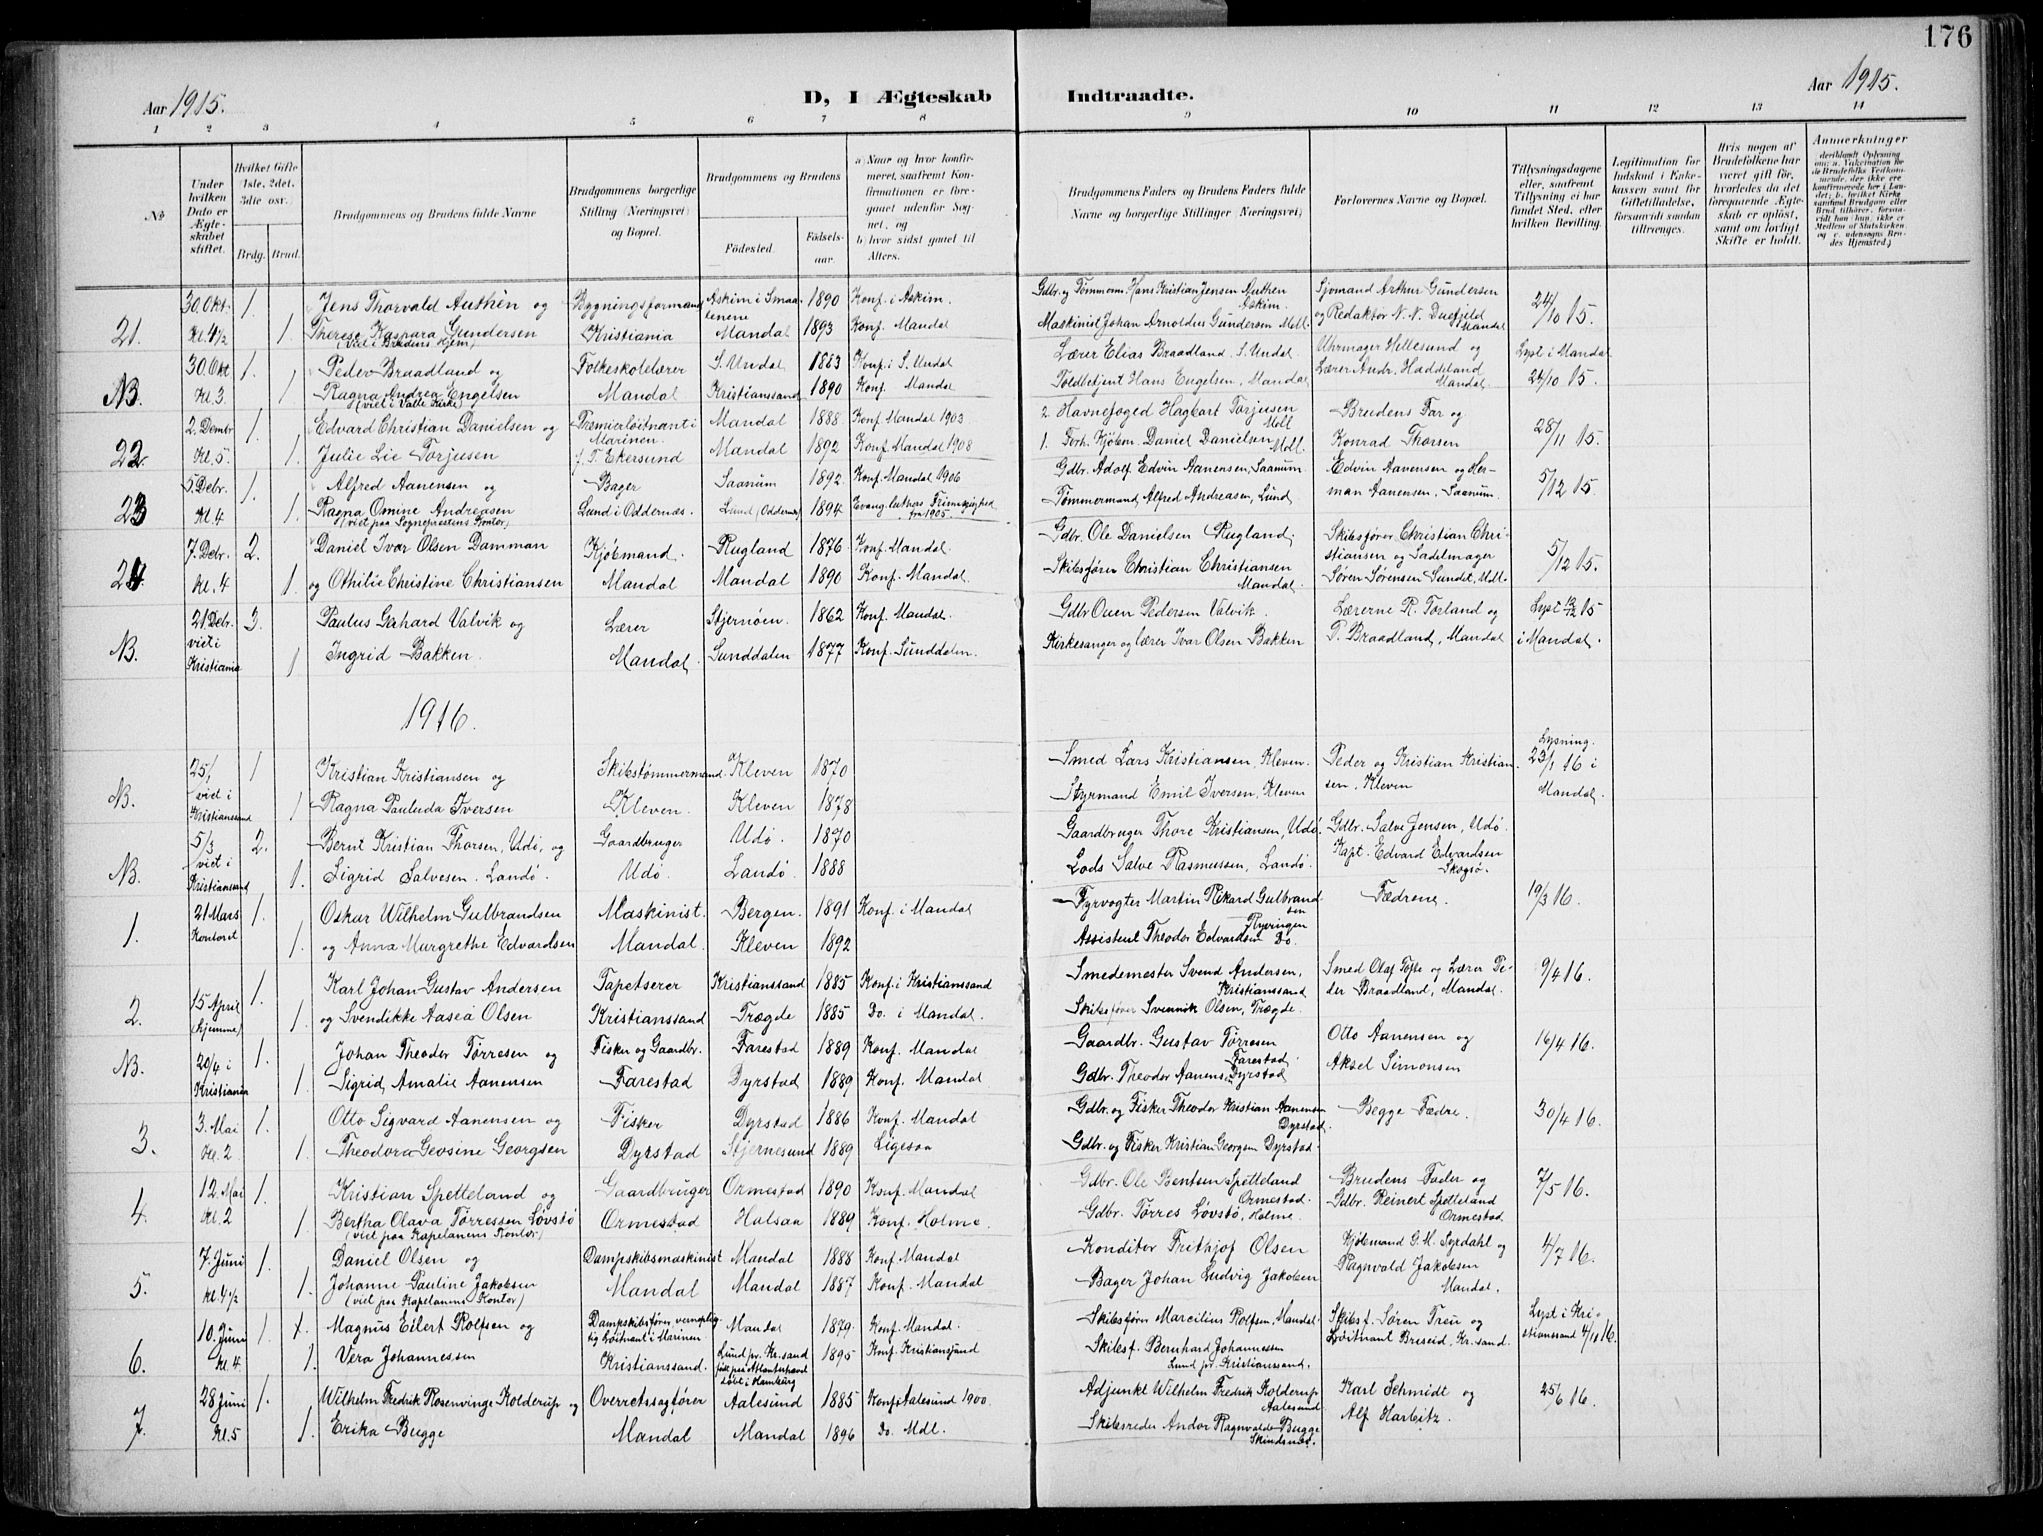 176
Aar 1915.
D, I Ægteskab Indtraadte.
Aar 1915.
1 2 3 4 5 6 7 8 9 10 11 12 13 14
No
Under hvilken Dato er Ægteskabet stiftet.
Hvilket Gifte (1ste, 2det, 3die osv.)
Brdg. Brud.
Brudgommens og Brudens fulde Navne
Brudgommens borgerlige Stilling (Næringsvei) og Bopæl.
Brudgommens og Brudens
Fødested.
Fødselsaar.
a) Naar og hvor konfirmeret, saafremt Konfirmationen er foregaaet udenfor Sognet, og b) hvor sidst gaaet til Alters.
Brudgommens Faders og Brudens Faders fulde Navne og borgerlige Stillinger (Næringsvei)
Forlovernes Navne og Bopæl.
Tillysningsdagene eller, saafremt Tillysning ei har fundet Sted, efter hvilken Bevilling.
Legitimation for Indskud i Enkekassen samt for Giftetilladelse, forsaavidt saadan tiltrænges.
Hvis nogen af Brudefolkene har været gift før, hvorledes da det foregaaende Ægteskab er opløst, samt om lovligt Skifte er holdt.
Anmerkninger
21. 30. Okt. Kl. 4½ 1. Jens Thorvald Authén og Bygningsformand Askim i Smaalenene 1890 Konf. i Askim. Gdbr. og Tømmerm. Hans Kristian Jensen Authen Askim. Sjømand Arthur Gundersen 24/10 15.
1 Therese Kaspara Gundersen (viet i Brudens Hjem) Kristiania Mandal 1893 Konf. Mandal Maskinist Johan Arnoldus Gundersen Mdl. og Redaktør N. N. Duefjeld Mandal
NB. 30. Okt Kl. 3. 1. Peder Braadland og Folkeskolelærer S. Undal 1883 Konf. i S. Undal Lærer Elias Braadland, S. Undal. Uhrmager Hellesund og Lyst i Mandal
1 Ragna Andrea Engelsen (viet i Valle Kirke) Mandal Kristianssand 1890 Konf. Mandal Toldbetjent Hans Engelsen, Mandal Lærer Andr. Haddeland Mandal. 24/10 15.
22. 2. Dembr. Kl. 5. 1. Edvard Christian Danielsen og Premierløitnant i Marinen. Mandal 1888 Konf. Mandal 1903 2. Havnefoged Hagbart Torjusen Mdl Brudens Far og 28/11 15.
1. Julie Lie Torjusen f. T. Ekersund Mandal 1892 Konf. Mandal 1908 1. Forh. Kjøbm. Daniel Danielsen Mdl. Konrad Thorsen
23 5. Debr. Kl. 4 1. Alfred Aanensen og Bager Saanum 1892 Konf. Mandal 1906 Gdbr. Adolf Edvin Aanensen, Saanum Edvin Aanensen og Her- 5/12 15.
1. Ragna Omine Andreasen (viet paa Sogneprestens Kontor) Lund i Oddernæs. Lund (Oddernes) 1894 Evang. luthersk Frimenighed fra 1905. Tømmermand Alfred Andreasen, Lund man Aanensen, Saanum.
24. 7. Debr. Kl. 4 2. Daniel Ivar Olsen Damman Kjøbmand. Rugland 1876 Konf. Mandal. Gdbr. Ole Danielsen Rugland. Skibsfører Christian Chri- 5/12 15.
1. og Othilie Christine Christiansen Mandal Mandal 1890 Konf. Mandal. Skibsføren Christian Christiansen Mandal. stiansen og Sadelmager Søren Sørensen Sundet, Mdl.
NB. 21 Debr. viet i Kristiania 3. Paulus Gerhard Valvik og Lærer Stjernöen. 1862 Konf. Mandal. Gdbr Ouen Pedersen Valvik. Lærerne R. Torland og Lyst 12/12 15
1 Ingrid Bakken. Mandal Sunddalen 1877 Konf. Sunddalen. Kirkesanger og lærer Ivar Olsen Bakken P. Braadland, Mandal i Mandal.
1916.
NB. 25/1 viet i Kristianssand 1 Kristian Kristiansen og Skibstømmermand Kleven 1870 Smed Lars Kristiansen, Kleven. Peder og Kristian Kristian- Lysning. 23/1 16 i
1 Ragna Paulida Iversen Kleven. Kleven 1878 Styrmand Emil Iversen, Kleven sen, Kleven Mandal.
NB. 5/3 viet i Kristianssand 2. Bernt Kristian Thorsen, Udö, og Gaardbruger Udö. 1870 Gaardbruger Thore Kristiansen, Udö. Gdbr. Salve Jensen, Udö.
1. Sigrid Salvesen. Landö. Udö. Landö. 1888 Lods Salve Rasmussen, Landö. Kapt. Edvard Edvardsen Skogsö.
1. 21 Mars Kontoret 1. Oskar Wilhelm Gulbrandsen Maskinist. Bergen. 1891 Konf. i Mandal Fyrvogter Martin Rikard Gulbrandsen Ryvingen Fædrene. 19/3 16.
1. og Anna Margrethe Edvardsen Mandal. Kleven 1892 Assistent Theodor Edvardsen Do.
2. 15 April (hjemme) 1. Karl Johan Gustav Andersen Tapetserer Kristianssand 1885 Konf. i Kristianssand Smedemester Svend Andersen, Kristianssand Smed Olaf Tofte og Lærer Pe- 9/4 16.
1. og Svendikke Aasea Olsen Kristianssand Trægde 1885 Do. i Mandal. Skibsfører Svennik Olsen, Trægde. der Braadland, Mandal.
NB. 20/4 i Kristiania 1. Johan Theodor Tørresen og Fisker og Gaardbr. Farestad 1889 Konf. Mandal Gaardbr. Gustav Tørresen Farestad Otto Aanensen og 16/4 16.
1. Sigrid Amalie Aanensen Farestad Dyrstad 1889 Konf. Mandal Gdbr. Theodor Aanensen Dyrstad Aksel Simonsen
3. 3. Mai Kl. 2 1. Otto Sigvard Aanensen og Fisker Dyrstad 1886 Konf. Mandal Gdbr. og Fisker Theodor Kristian Aanensen Dyrstad. Begge Fædre. 30/4 16.
1. Theodora Geosine Georgsen Dyrstad Stjernesund 1889 Ligesaa Gdbr. og Fisker Kristian Georgsen Dyrstad.
4. 12. Mai Kl. 2 1. Kristian Spetteland og Gaardbruger Ormestad 1890 Konf. Mandal Gdbr. Ole Bentsen Spetteland Ormestad. Brudens Fader og 7/5 16.
1. Bertha Olava Tørressen Løvstø (viet paa Kapelanens Kontor) Ormestad Halsaa 1889 Konf. Holme. Gdbr. Tørres Løvstø, Holme. Gdbr. Reinert Spetteland Ormestad.
5. 7. Juni Kl. 4½ 1. Daniel Olsen og Dampskibsmaskinist Mandal 1888 Konf. Mandal Konditor Frithjof Olsen Kjøbmand G. M. Syrdahl og 4/7 16.
1. Johanne Pauline Jakobsen (viet paa Kapelanens Kontor) Mandal Mandal 1887 Konf. Mandal Bager Johan Ludvig Jakobsen Ragnvald Jakobsen Mandal.
6. 10. Juni Kl. 4. 1. Magnus Eilert Rolfsen og Dampskibsfører, vernepligtig Løitnant i Marinen. Mandal 1879. Konf. Mandal. Skibsfører Marcilius Rolfsen, Mandal. Skibsf. Søren Treu og Lyst i Kri-
1. Vera Johannessen Kristianssand. Lund pr. Kr.sand født paa Atlanterhavet døbt i Hamburg 1895 Konf. Kristianssand Skibsf. Bernhard Johannessen Lund pr. Kristianssand. Løitnant Breseid, Kr.sand. stianssand 4/6 16.
7. 28 Juni Kl. 5 1. Wilhelm Fredrik Rosenvinge Kolderup og Overretssagfører Aalesund 1885 Konf. Aalesund 1900. Adjunkt Wilhelm Fredrik Kolderup Aalesund Karl Schmidt og 25/6 16.
1. Erika Bugge Mandal Mandal 1896 Do. Mdl. Skibsreder Andor Ragnvalde Bugge Skindsnes. Alf Harbitz.